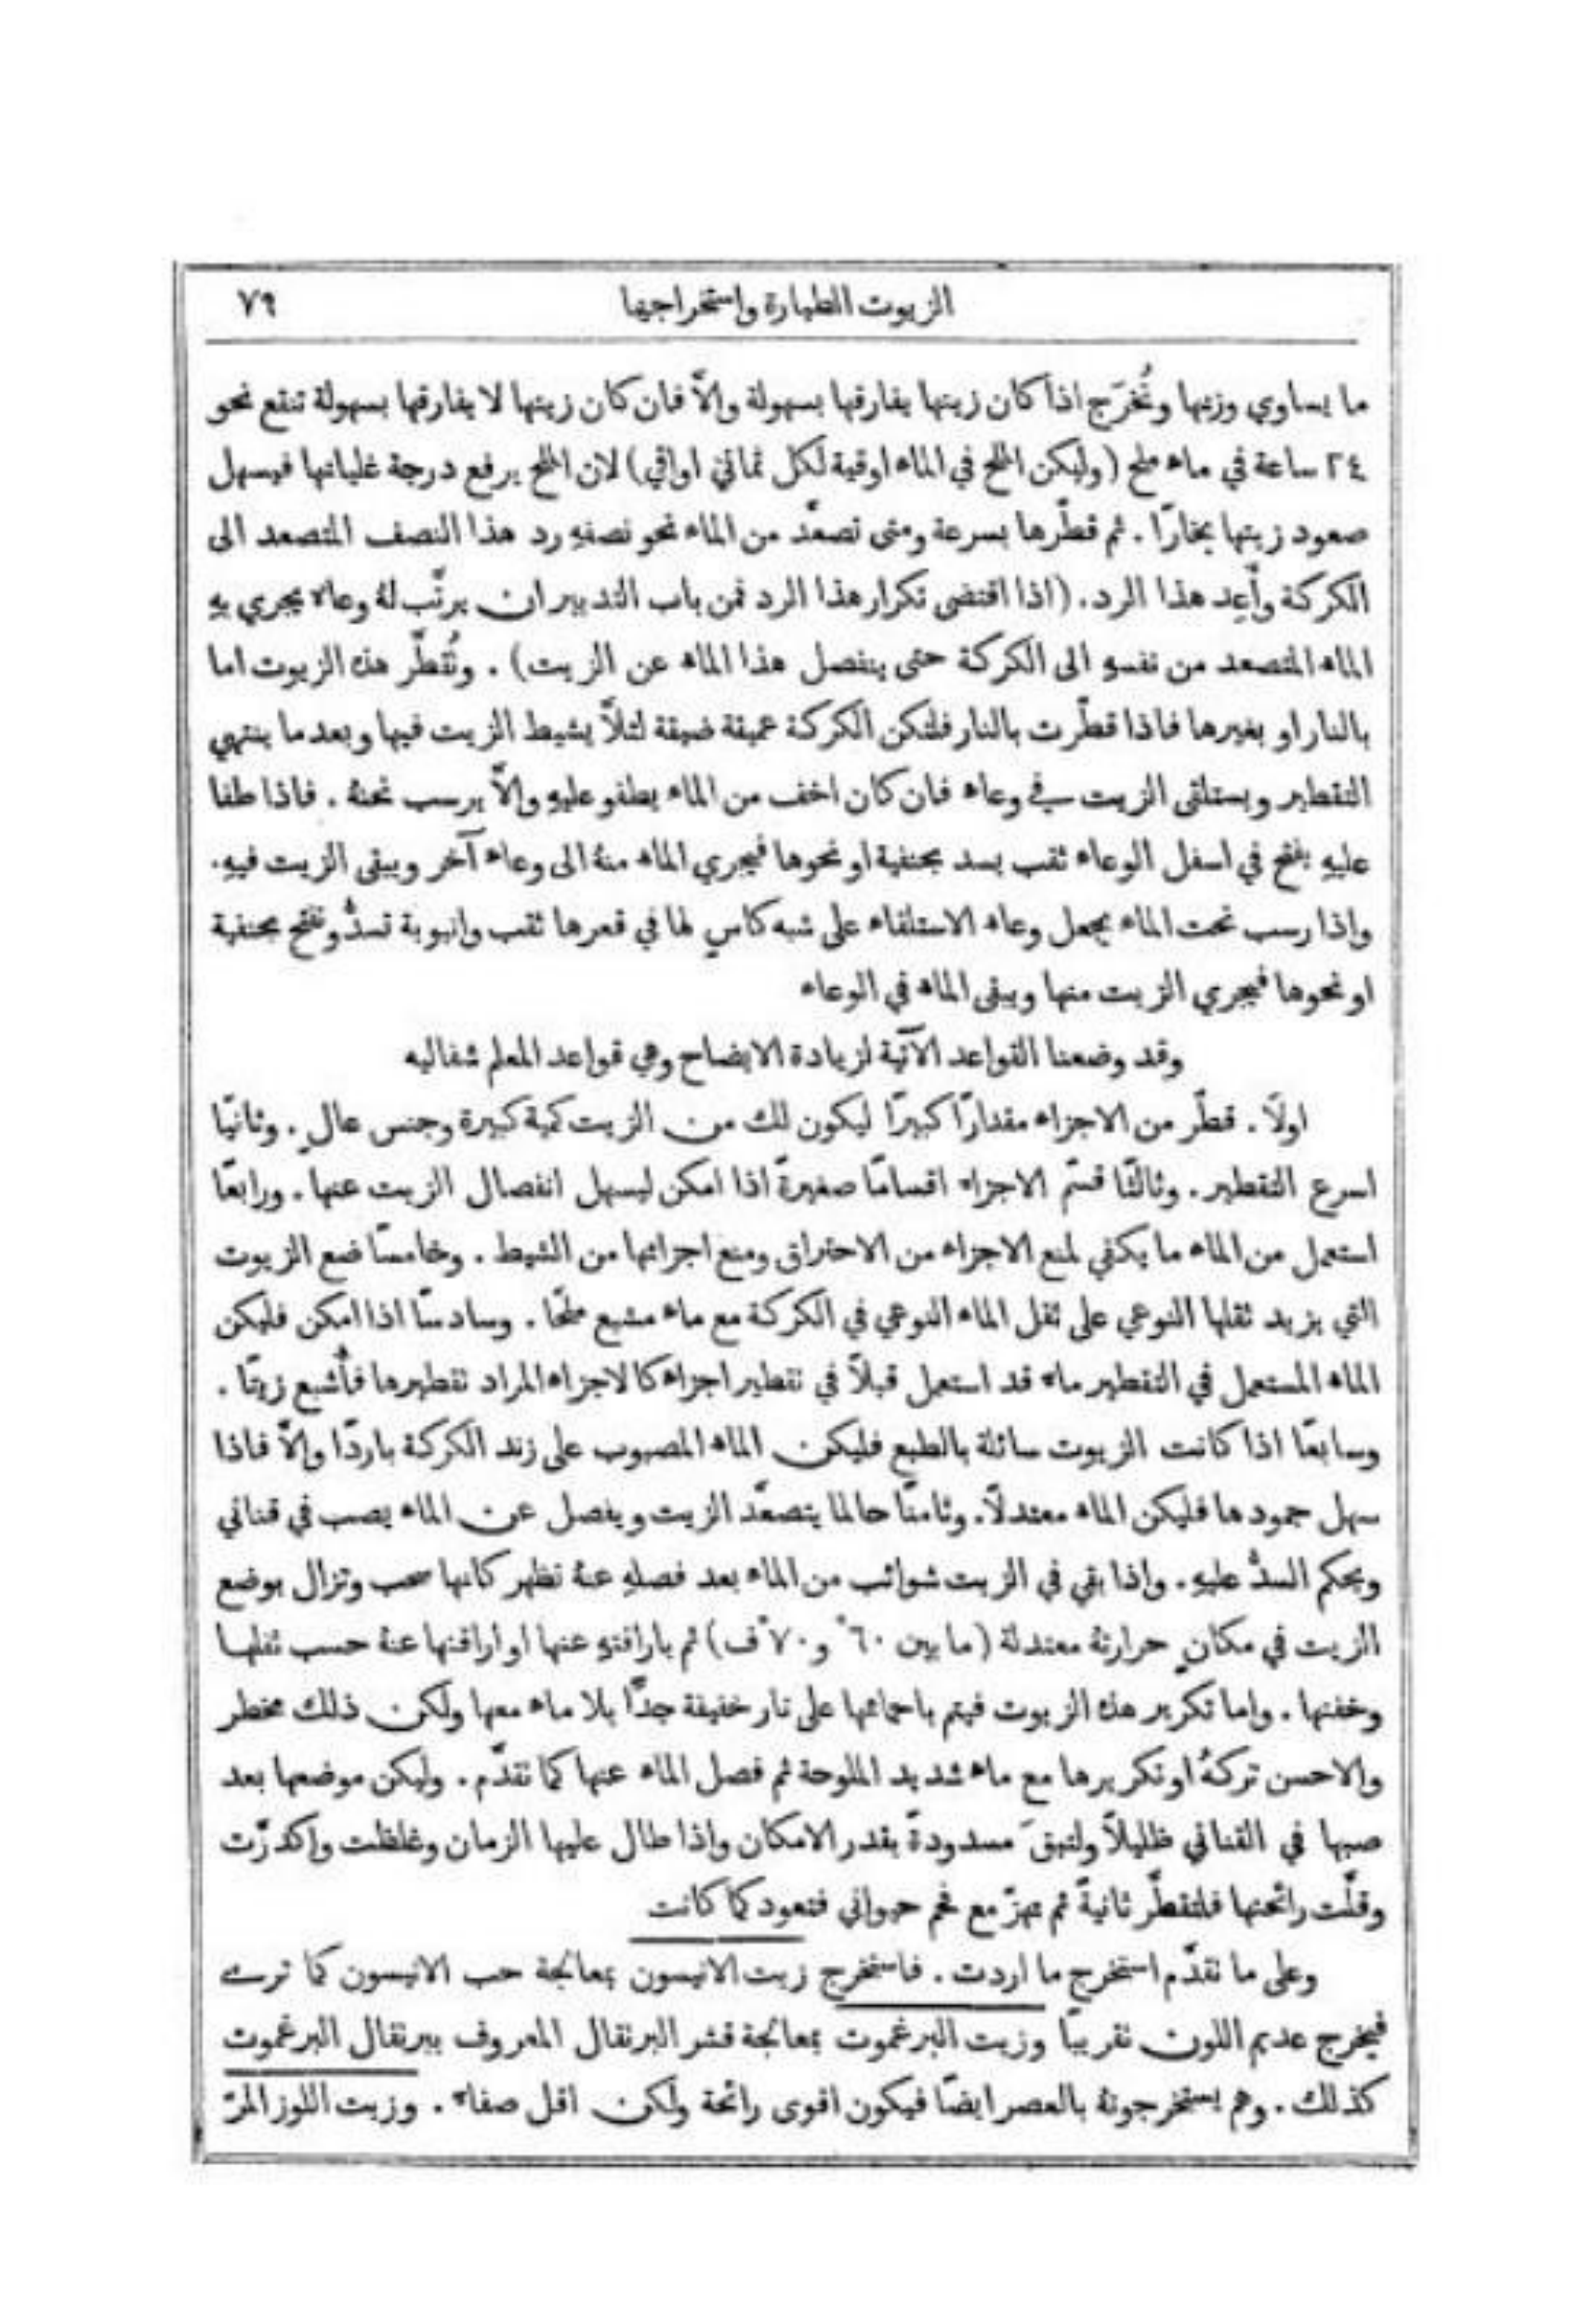 الزيوت الطيارة واستخراجها ٧٩
ما يساوي وزنها وتُخرَج اذا كان زيتها يفارقها بسهولة والَّا فان كان زيتها لا يفارقها بسهولة تنقع نحو
٢٤ ساعة في ماء ملح (وليكن الملح في الماء اوقية لكل ثماني اواقي) لان الملح يرفع درجة غليانها فيسهل
صعود زيتها بخارًا . ثم قطّرها بسرعة ومتى تصعّد من الماء نحو نصفهِ رد هذا النصف المتصعد الى
الكركة وأَعِد هذا الرد. (اذا اقتضى تكرار هذا الرد فمن باب التدبير ان يرتَّب لهُ وعاء يجري بهِ
الماء المتصعد من نفسهِ الى الكركة حتى ينفصل هذا الماء عن الزيت) . وتُقطَّر هذه الزيوت اما
بالنار او بغيرها فاذا قطّرت بالنار فلتكن الكركة عميقة ضيقة لئلَّا يشيط الزيت فيها وبعد ما ينتهي
التقطير ويستلقى الزيت في وعاء فان كان اخف من الماء يطفو عليهِ والَّا يرسب تحتهُ . فاذا طفا
عليهِ يفتح في اسفل الوعاء ثقب يسد بحنفية او نحوها فيجري الماء منهُ الى وعاء آخر ويبقى الزيت فيهِ.
واذا رسب تحت الماء يجعل وعاء الاستلقاء على شبه كاسٍ لها في قعرها ثقب وانبوبة تسدُّ وتفتح بحنفية
او نحوها فيجري الزيت منها ويبقى الماء في الوعاء
وقد وضعنا القواعد الآتية لزيادة الايضاح وهي قواعد المعلم شفاليه
اولًا . قطّر من الاجزاء مقدارًا كبيرًا ليكون لك من الزيت كمية كبيرة وجنس عالٍ . وثانيًا
اسرع التقطير . وثالثًا قسّم الاجزاء اقسامًا صغيرةً اذا امكن ليسهل انفصال الزيت عنها . ورابعًا
استعمل من الماء ما يكفي لمنع الاجزاء من الاحتراق ومنع اجزائها من الشيط . وخامسًا ضع الزيوت
التي يزيد ثقلها النوعي على ثقل الماء النوعي في الكركة مع ماء مشبع ملحًا . وسادسًا اذا امكن فليكن
الماء المستعمل في التقطير ماء قد استعمل قبلًا في تقطير اجزاء كالاجزاء المراد تقطيرها فأُشبع زيتًا .
وسابعًا اذا كانت الزيوت سائلة بالطبع فليكن الماء المصبوب على زند الكركة باردًا والَّا فاذا
سهل جمودها فليكن الماء معتدلًا. وثامنًا حالما يتصعّد الزيت ويفصل عن الماء يصب في قناني
ويحكم السدُّ عليهِ . واذا بقي في الزيت شوائب من الماء بعد فصلهِ عنهُ تظهر كانها سحب وتزال بوضع
الزيت في مكانٍ حرارتهُ معتدلة (ما بين ٦٠° و ٧٠°ف) ثم باراقتهِ عنها او اراقتها عنهُ حسب ثقلها
وخفتها . واما تكرير هذه الزيوت فيتم باحمائها على نار خفيفة جدًّا بلا ماء معها ولكن ذلك مخطر
والاحسن تركهُ او تكريرها مع ماء شديد الملوحة ثم فصل الماء عنها كما تقدَّم . وليكن موضعها بعد
صبها في القناني ظليلًا ولتبقَ مسدودةً بقدر الامكان واذا طال عليها الزمان وغلظت واكدرَّت
وقلَّت رائحتها فلتقطَّر ثانيةً ثم تهزّ مع فحم حيواني فتعود كما كانت
وعلى ما تقدَّم استخرج ما اردت . فاستخرج زيت الانيسون بمعالجة حب الانيسون كما ترى
فيخرج عديم اللون تقريبًا وزيت البرغموت بمعالجة قشر البرتقال المعروف ببرتقال البرغموت
كذلك . وهم يستخرجونهُ بالعصر ايضًا فيكون اقوى رائحة ولكن اقل صفاء . وزيت اللوز المرّ